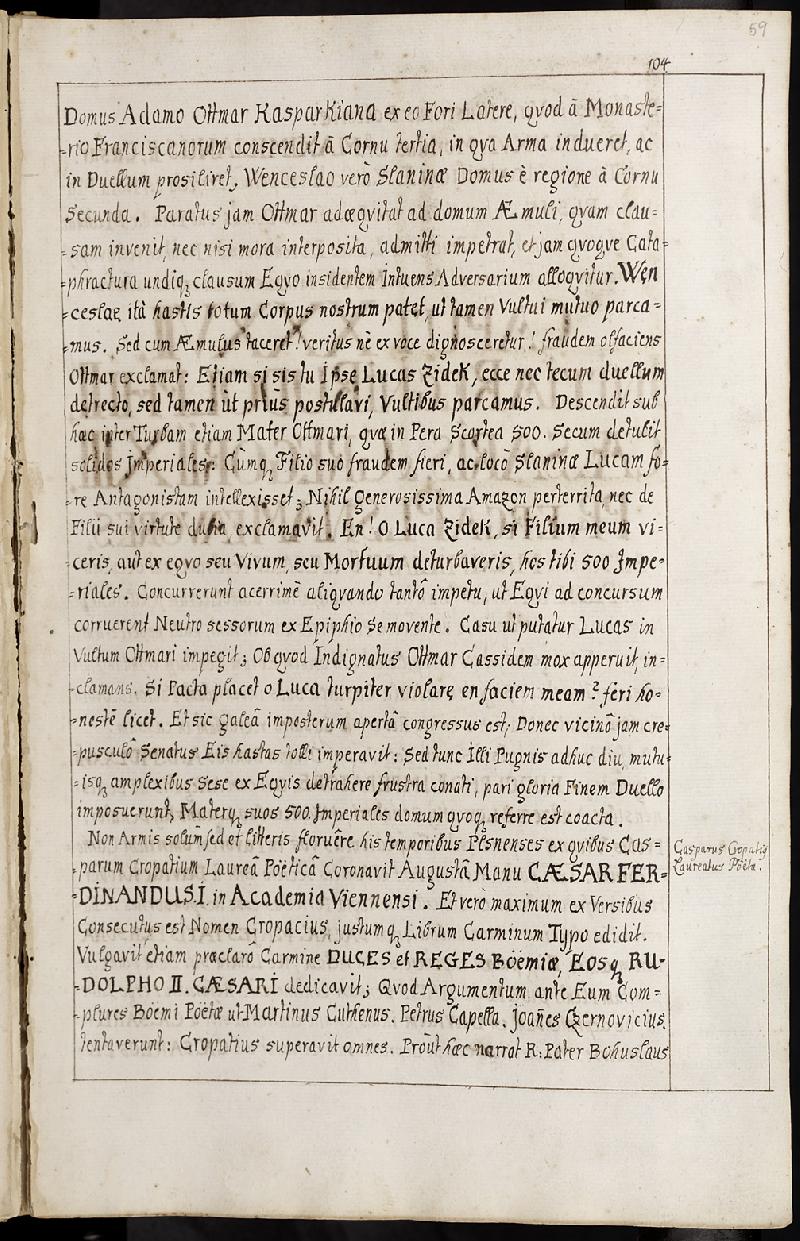 59
104
Domus Adamo Ottmar Kasparkiana ex eo Fori Latere, qvod â Monaste=
=rio Franciscanorum conscendit â Cornu tertia, in qva Arma indueret, ac
in Duellum prosiliret, Wenceslao verò Slaninæ Domus è regione â Cornu
Secunda. Paratus jam Ottmar adæqvitat ad domum Æmuli, qvam clau-
=sam invenit, nec nisi mora interposita, admitti impetrat, et jam qvoqve Cata=
=phractura undiq₃ clausum Eqvo insidentem Intuens Adversarium alloqvitur. Wen
ceslae, itâ hastis totum Corpus nostrum patet, ut tamen Vultui mutuo parca=
=mus. Sed cum Æmulus taceret! veritus nè ex voce dignosceretur! fraudem olfaciens
Ottmar exclamat: Etiam si sis tu Ipse Lucas Zidek, ecce nec tecum duellum
detrecto, sed tamen ùt priùs postulavi, Vultibus parcamus. Descendit sub
hæc inter Turbam etiam Mater Ottmari, qvæ in Pera Scortea 500. Secum detulit
solidos Imperiales: Cùmq₃ Filio suo fraudem fieri, ac loco Slaninæ Lucam fo=
=re Antagonistam intellexisset; Nihil Generosissima Amazon perterrita, nec de
Filii sui virtute dubia, exclamavit. En! O Luca Zidek, si Filium meum vi=
=ceris, aut ex eqvo seu Vivum, seu Mortuum deturbaveris, hos tibi 500 Impe=
=riales. Concurrerunt acerrimè aliqvando tantô impetu, ut Eqvi ad concursum
corruerent Neutro sessorum ex Epiphio Se movente. Casu ut putatur Lucas in
Vultum Ottmari impegit; Ob qvod Indignatus Ottmar Cassidem mox apperuit, in=
=clamans. Si Pacta placet o Luca turpiter violare en faciem meam? feri ho=
=nestè licet. Et sic Galeâ imposterum apertâ congressus est; Donec vicinô jam cre=
=pusculô Senatus Eis hastas tolli imperavit: Sed tunc Illi Pugnis adhuc diu, mutu=
=isq₃ amplexibus Sese ex Eqvis detrahere frustra conati, pari gloria Finem Duello
imposuerunt, Materq₃ suos 500 Imperiales domum qvoq₃ referre est coacta.
Non Armis solum sed et litteris floruêre his temporibus Plsnenses ex qvibus Cas=
parum Cropatium Laureâ Pôeticâ Coronavit Augustâ Manu CÆSAR FER=
=DINANDUS.I. in Academia Viennensi. Et verò maximum ex Versibus
Consecutus est Nomen Cropacius, justumq₃ Librum Carminum Typo edidit.
Vulgavit etiam præclarô Carmine DUCES et REGES Böemiæ, Eosq₃ RU-
=DOLPHO II. CÆSARI dedicavit; Qvod Argumentum ante Eum Com=
=plures Böemi Pöetæ ut Martinus Cuthenus. Petrus Capella. Joañes Czernovicius
tentaverunt: Cropatius superavit omnes. Proùt hæc narrat R: Pater Bohuslaus
Casparus Cropatiq
Laureatus Pöeta.